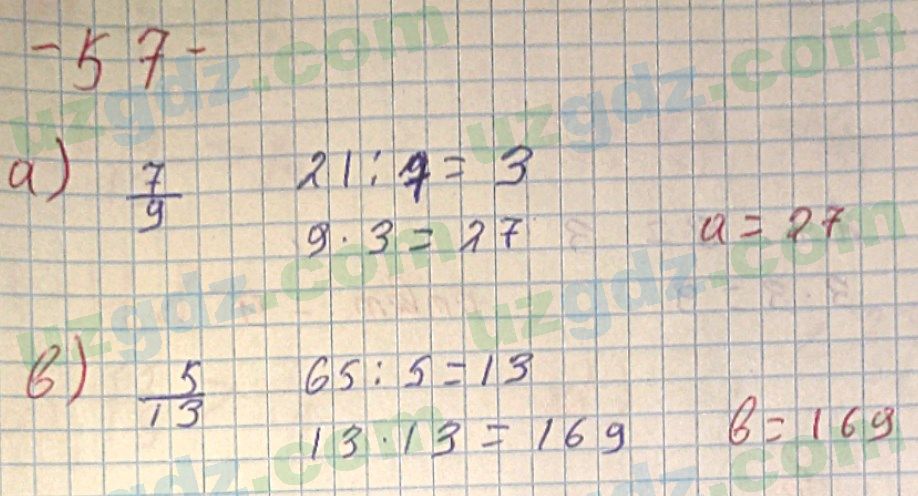 -57-
а) 7/9 21 : 7 = 3
9 · 3 = 27 a = 27
в) 5/13 65 : 5 = 13
13 · 13 = 169 в = 169
uzgdz.com
uzgdz.com
uzgdz.com
uzgdz.com
uzgdz.com
uzgdz.com